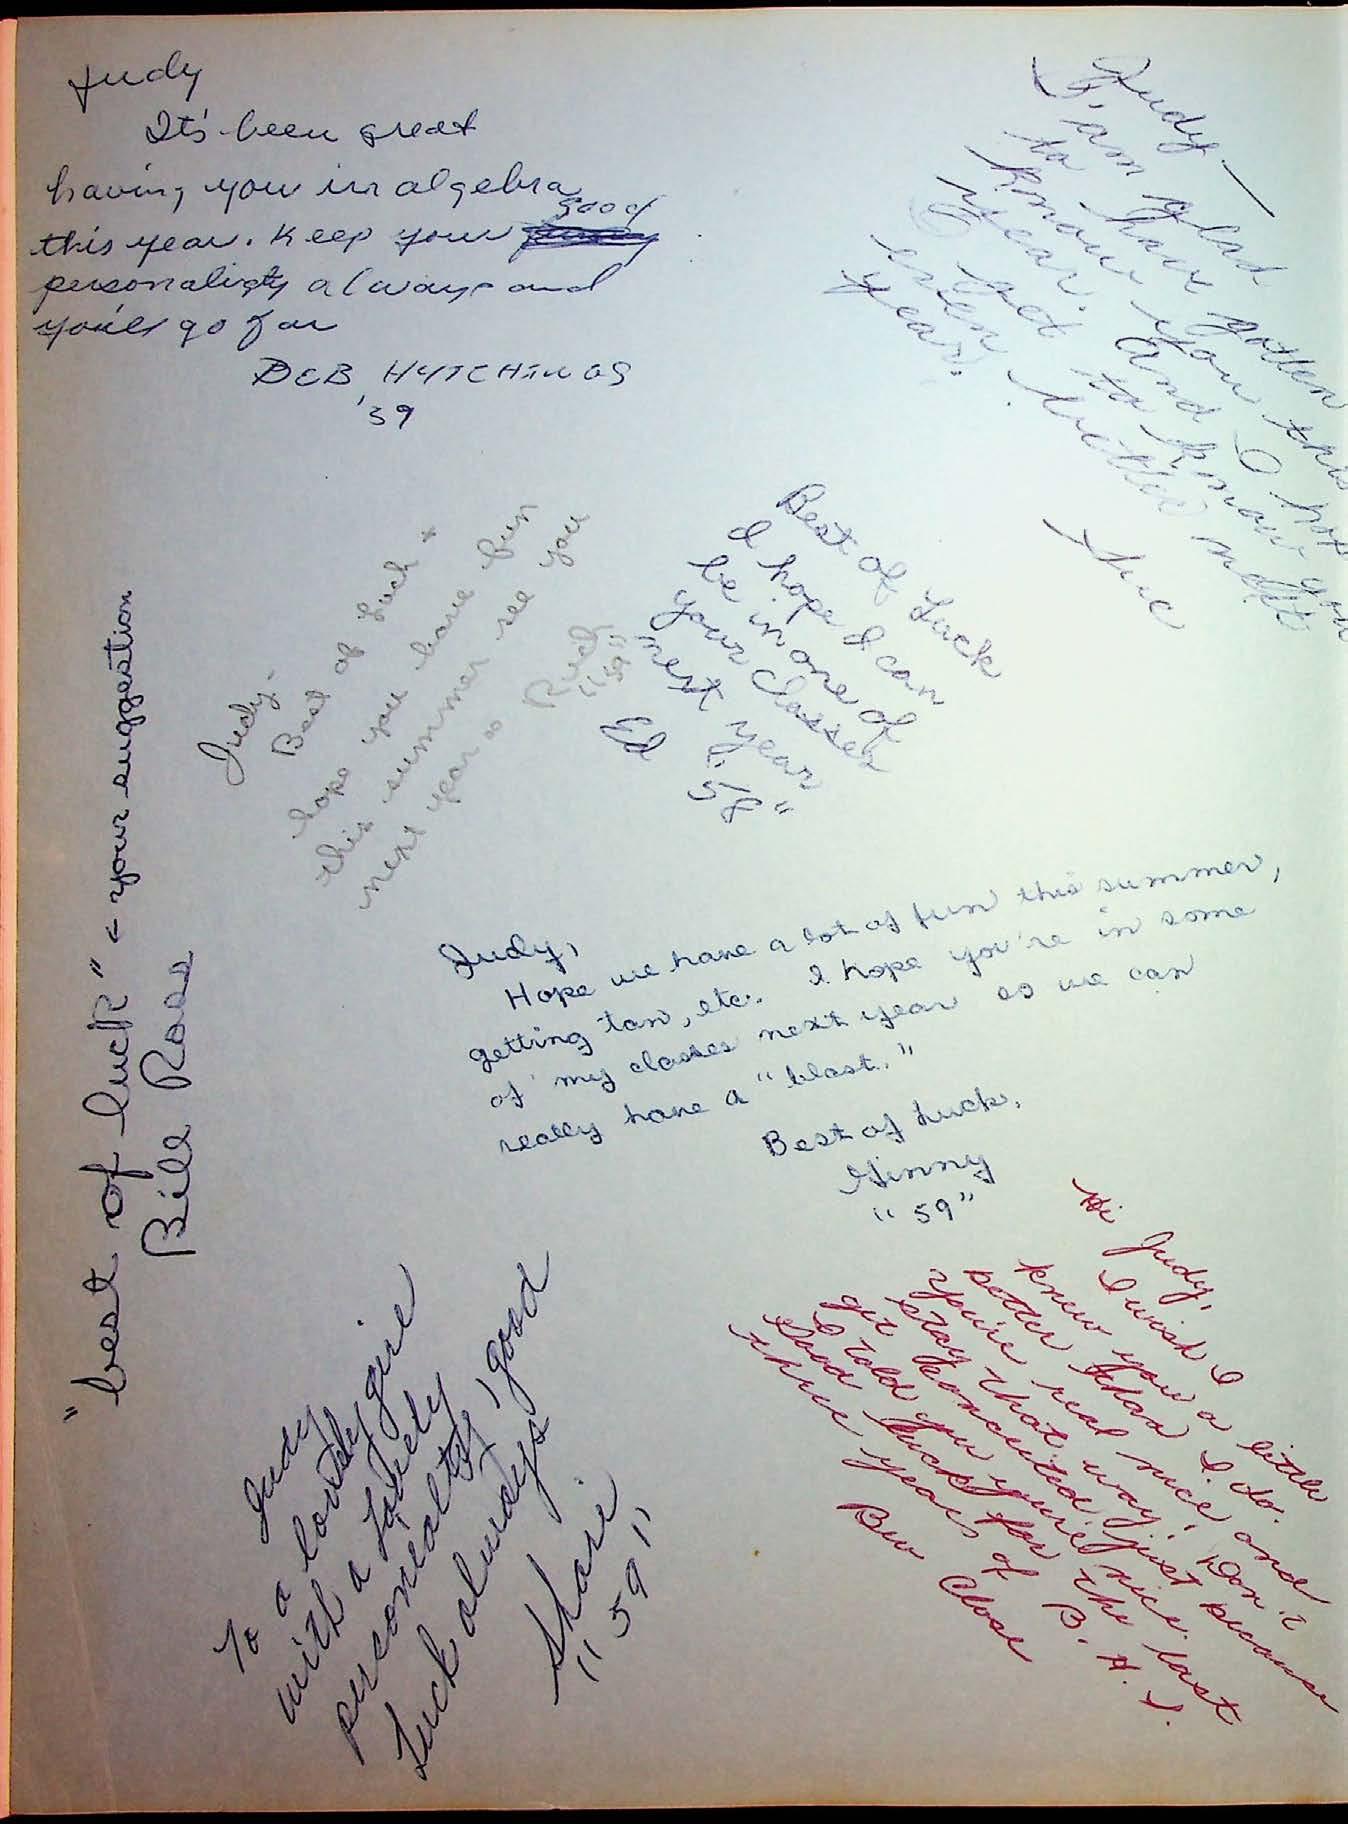 Judy
It's been great
having you in algebra
this year. Keep your good
personaligty always and
you'll go far
DEB HYTCHINGS
'59
Judy—
I am glad
to have gotten
to know you this
year. And I hope
I get to know you
even better next
year.
Sue
Judy-
Best of Luck +
hope you have fun
this summer see you
next year
Rich
"59"
Best of Luck
I hope I can
be in one of
your classes
next year
Ed
58"
"best of luck" < your suggestion
Bill Ross
Judy,
Hope we have a lot of fun this summer,
getting tan, etc. I hope you're in some
of my classes next year so we can
really have a "blast."
Best of Luck,
Ginny
"59"
Judy
To a lovely girl
with a lovely
personealty, good
Luck always
Shari
"59"
Hi Judy,
I wish I
knew you a little
better than I do.
You're real nice and
stay that way. Don't
get konceited, just because
I told you you're nice.
Good luck for the last
three years of B.H.S.
Bev Close